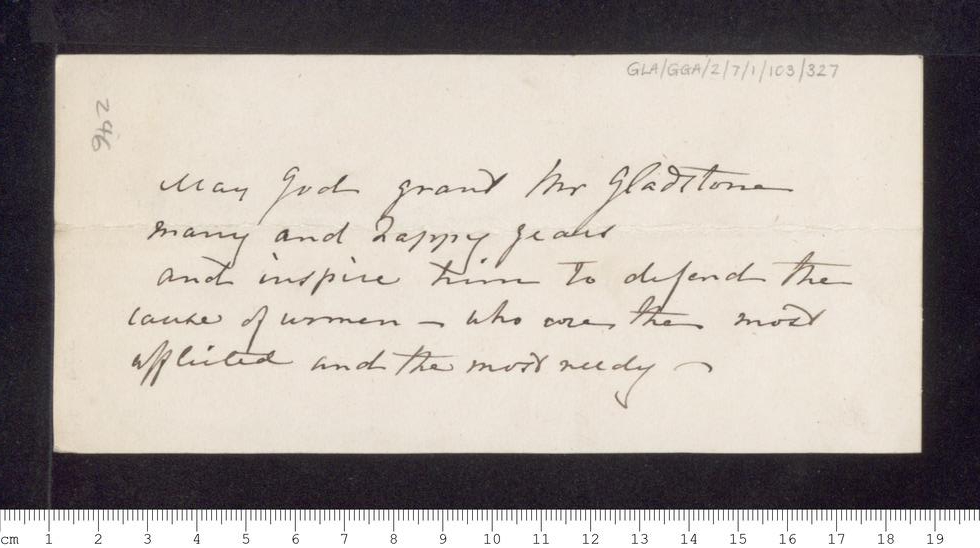 GLA/GGA/2/7/1/103/327
246
May God grant Mr Gladstone
many and happy years
and inspire him to defend the
cause of women – who are the most
afflicted and the most needy –
cm 1 2 3 4 5 6 7 8 9 10 11 12 13 14 15 16 17 18 19